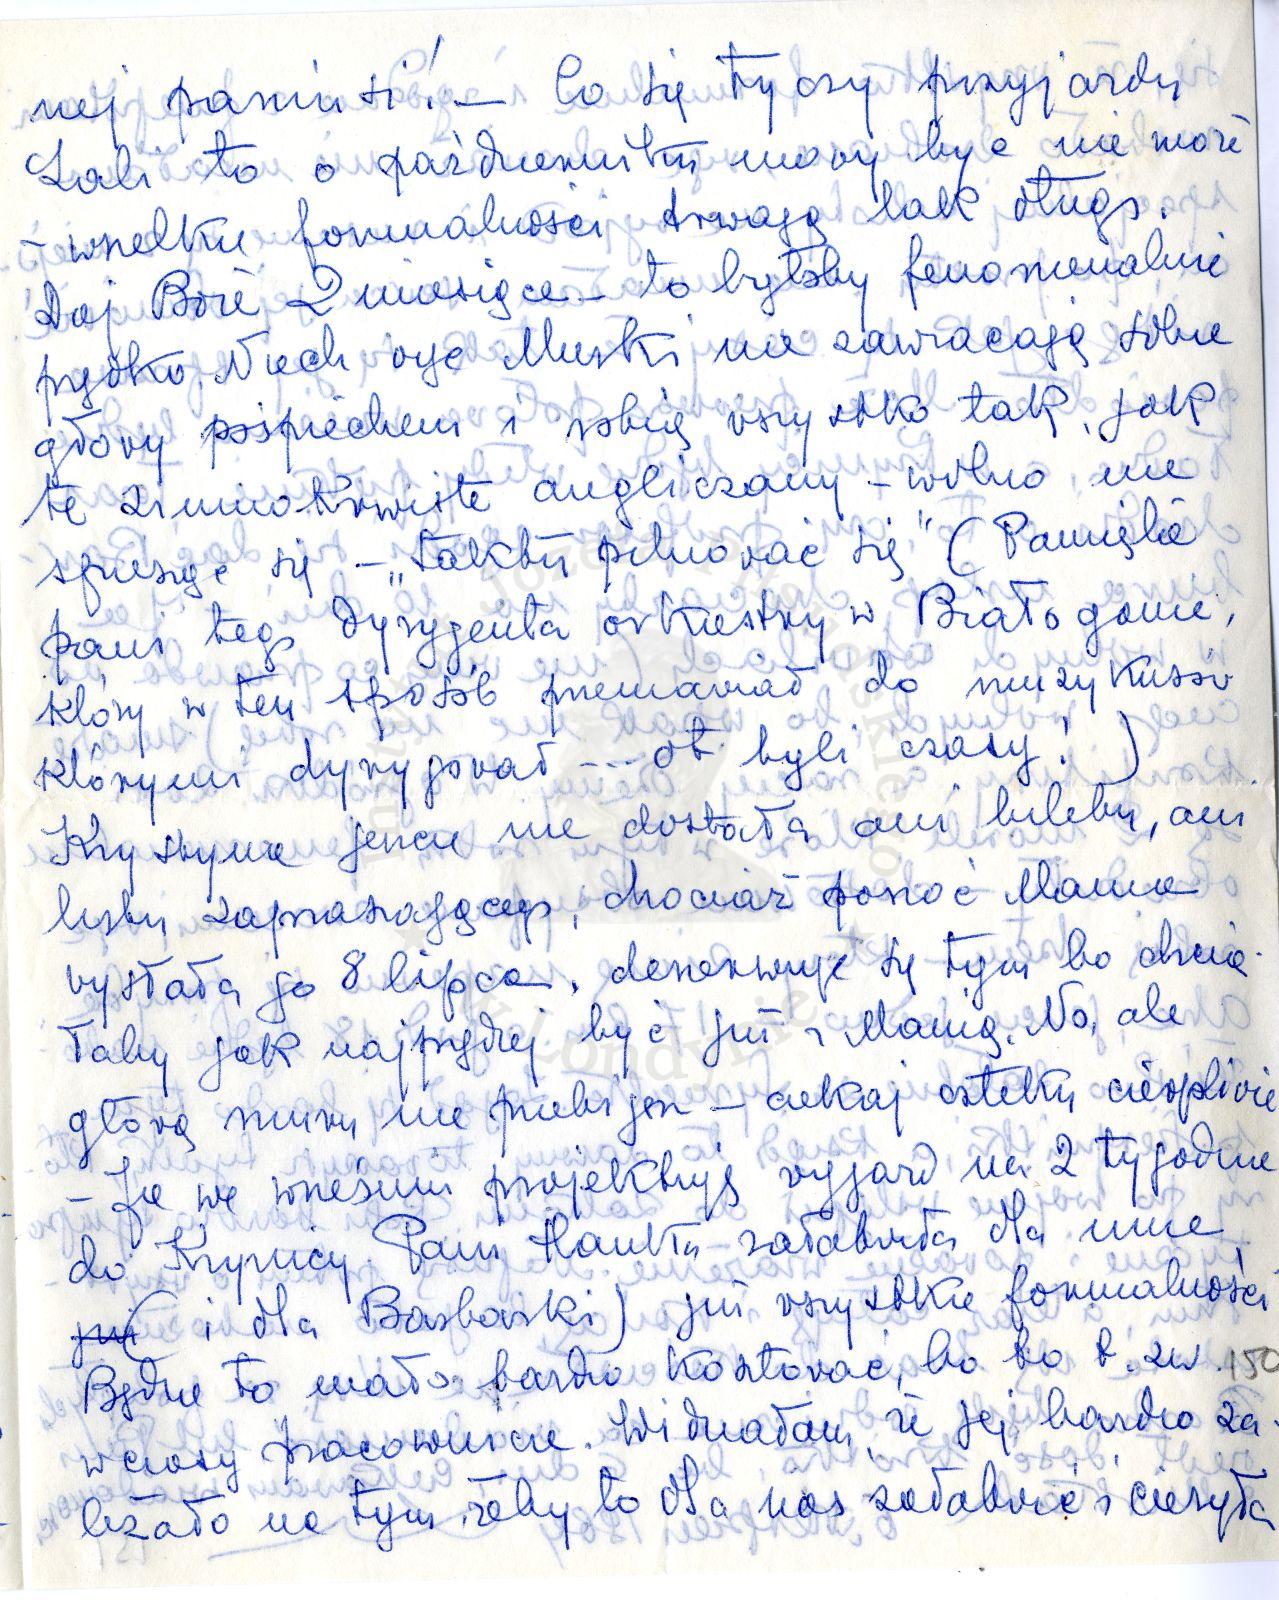 nej pamięsi! — Co się tyczy przyjazdu
Lali to o październiku mowy być nie może
– wszelkie formalności trwają tak długo.
Daj Boże 2 miesiące – to byłoby fenomenalnie
prędko. Niech więc Muski nie zawracają sobie
głowy pośpiechem i robią wszystko tak, jak
te zimnokrwiste angliczany – wolno, nie
spiesząc się – „taktu pilnować się" (Pamięta
pani tego dyrygenta orkiestry w Białogonie,
który w ten sposób przemawiał do muzykusów
którymi dyrygował --- ot byli czasy!)
Krystyna jeszcze nie dostała ani biletu, ani
listu zapraszającego, chociaż ponoć Mama
wysłała go 8 lipca, denerwuje się tym bo chcia-
łaby jak najprędzej być już z Mamą. No, ale
głową muru nie przebijesz – czekaj cierpliwie
– Ja we wrześniu projektuję wyjazd na 2 tygodnie
do Krynicy. Pani Hanka załatwiła dla mnie
już (i dla Barbarki) już wszystkie formalności
Będzie to mało bardzo kosztować, bo to t. zw.
150
wczasy pracownicze. Widziałam, że jej bardzo za-
leżało na tym, żeby to dla nas załatwić i cieszyła
Instytut Józefa Piłsudskiego
w Londynie